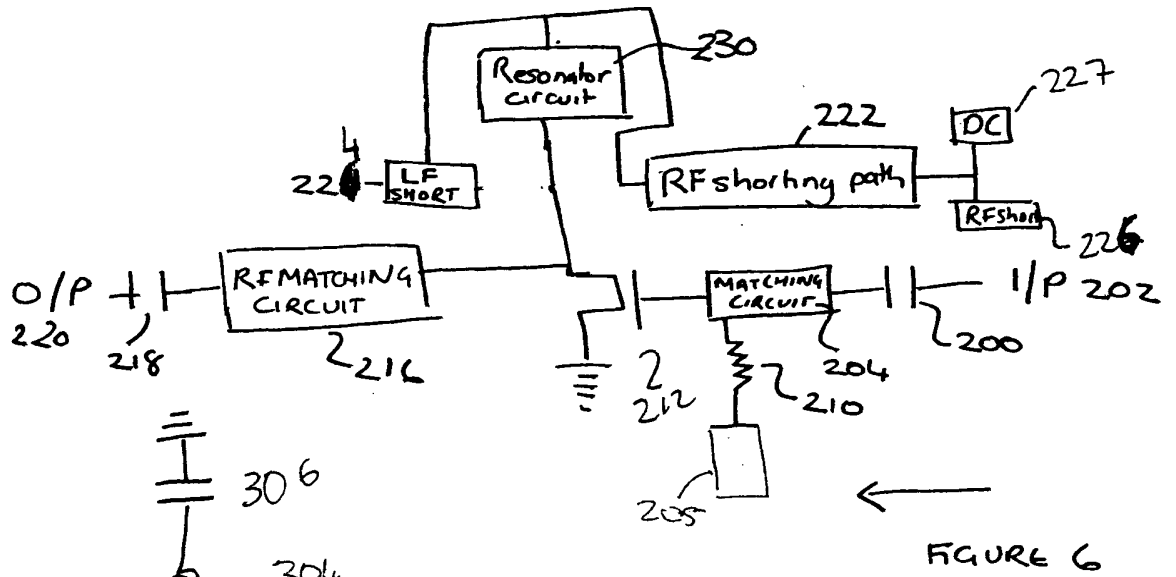 230
Resonator
circuit
227
DC
222
4
22
LF
SHORT
RF shorting path
RFshort
226
O/P
220
218
RF MATCHING
CIRCUIT
216
212
MATCHING
CIRCUIT
204
210
200
I/P 202
205
306
304
FIGURE 6